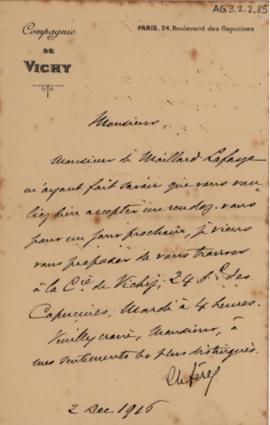 AG 3.2.2.85
Compagnie
DE
VICHY
PARIS, 24, Boulevard des Capucines
Monsieur,
Monsieur de Maillard Lafaye
m'ayant fait savoir que vous vou-
liez bien accepter un rendez-vous
pour un jour prochain, je viens
vous proposer de vous trouver
à la Cie de Vichy, 24 Bd des
Capucines, Mardi à 4 heures.
Veuillez croire, Monsieur, à
mes sentiments les plus distingués.
2 Dec 1916